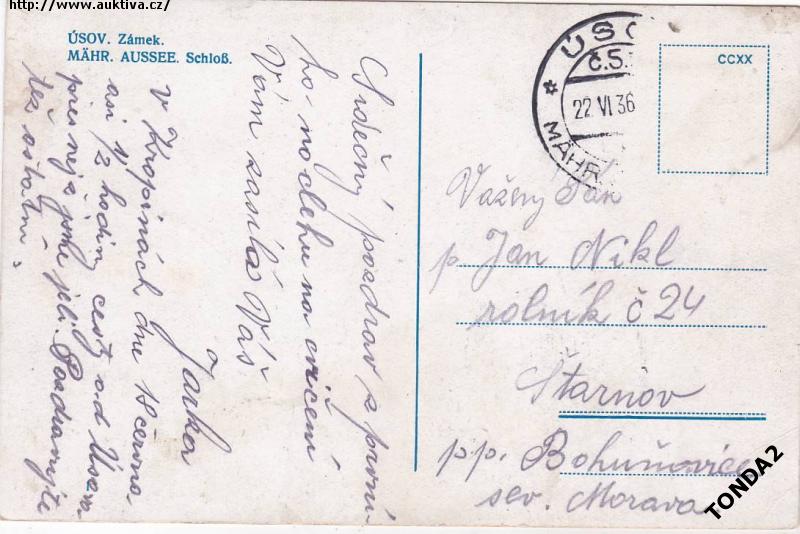 http://www.auktiva.cz/
ÚSOV. Zámek.
MÄHR. AUSSEE. Schloß.
Srdečný pozdrav z první-
ho noclehu na cvičení
Vám zasílá Váš
Jarka
V
dne 18 června
asi ½ hodiny cesty od Úsova
přes nějž jsme jeli. Pozdravujte
též ostatní.
ÚSO
č.5.
22 VI 36
MÄHR.
CCXX
Vážený Pán
p Jan Nikl
rolník č 24
Štarnov
p.p. Bohuňovice
sev. Morava
TONDA2